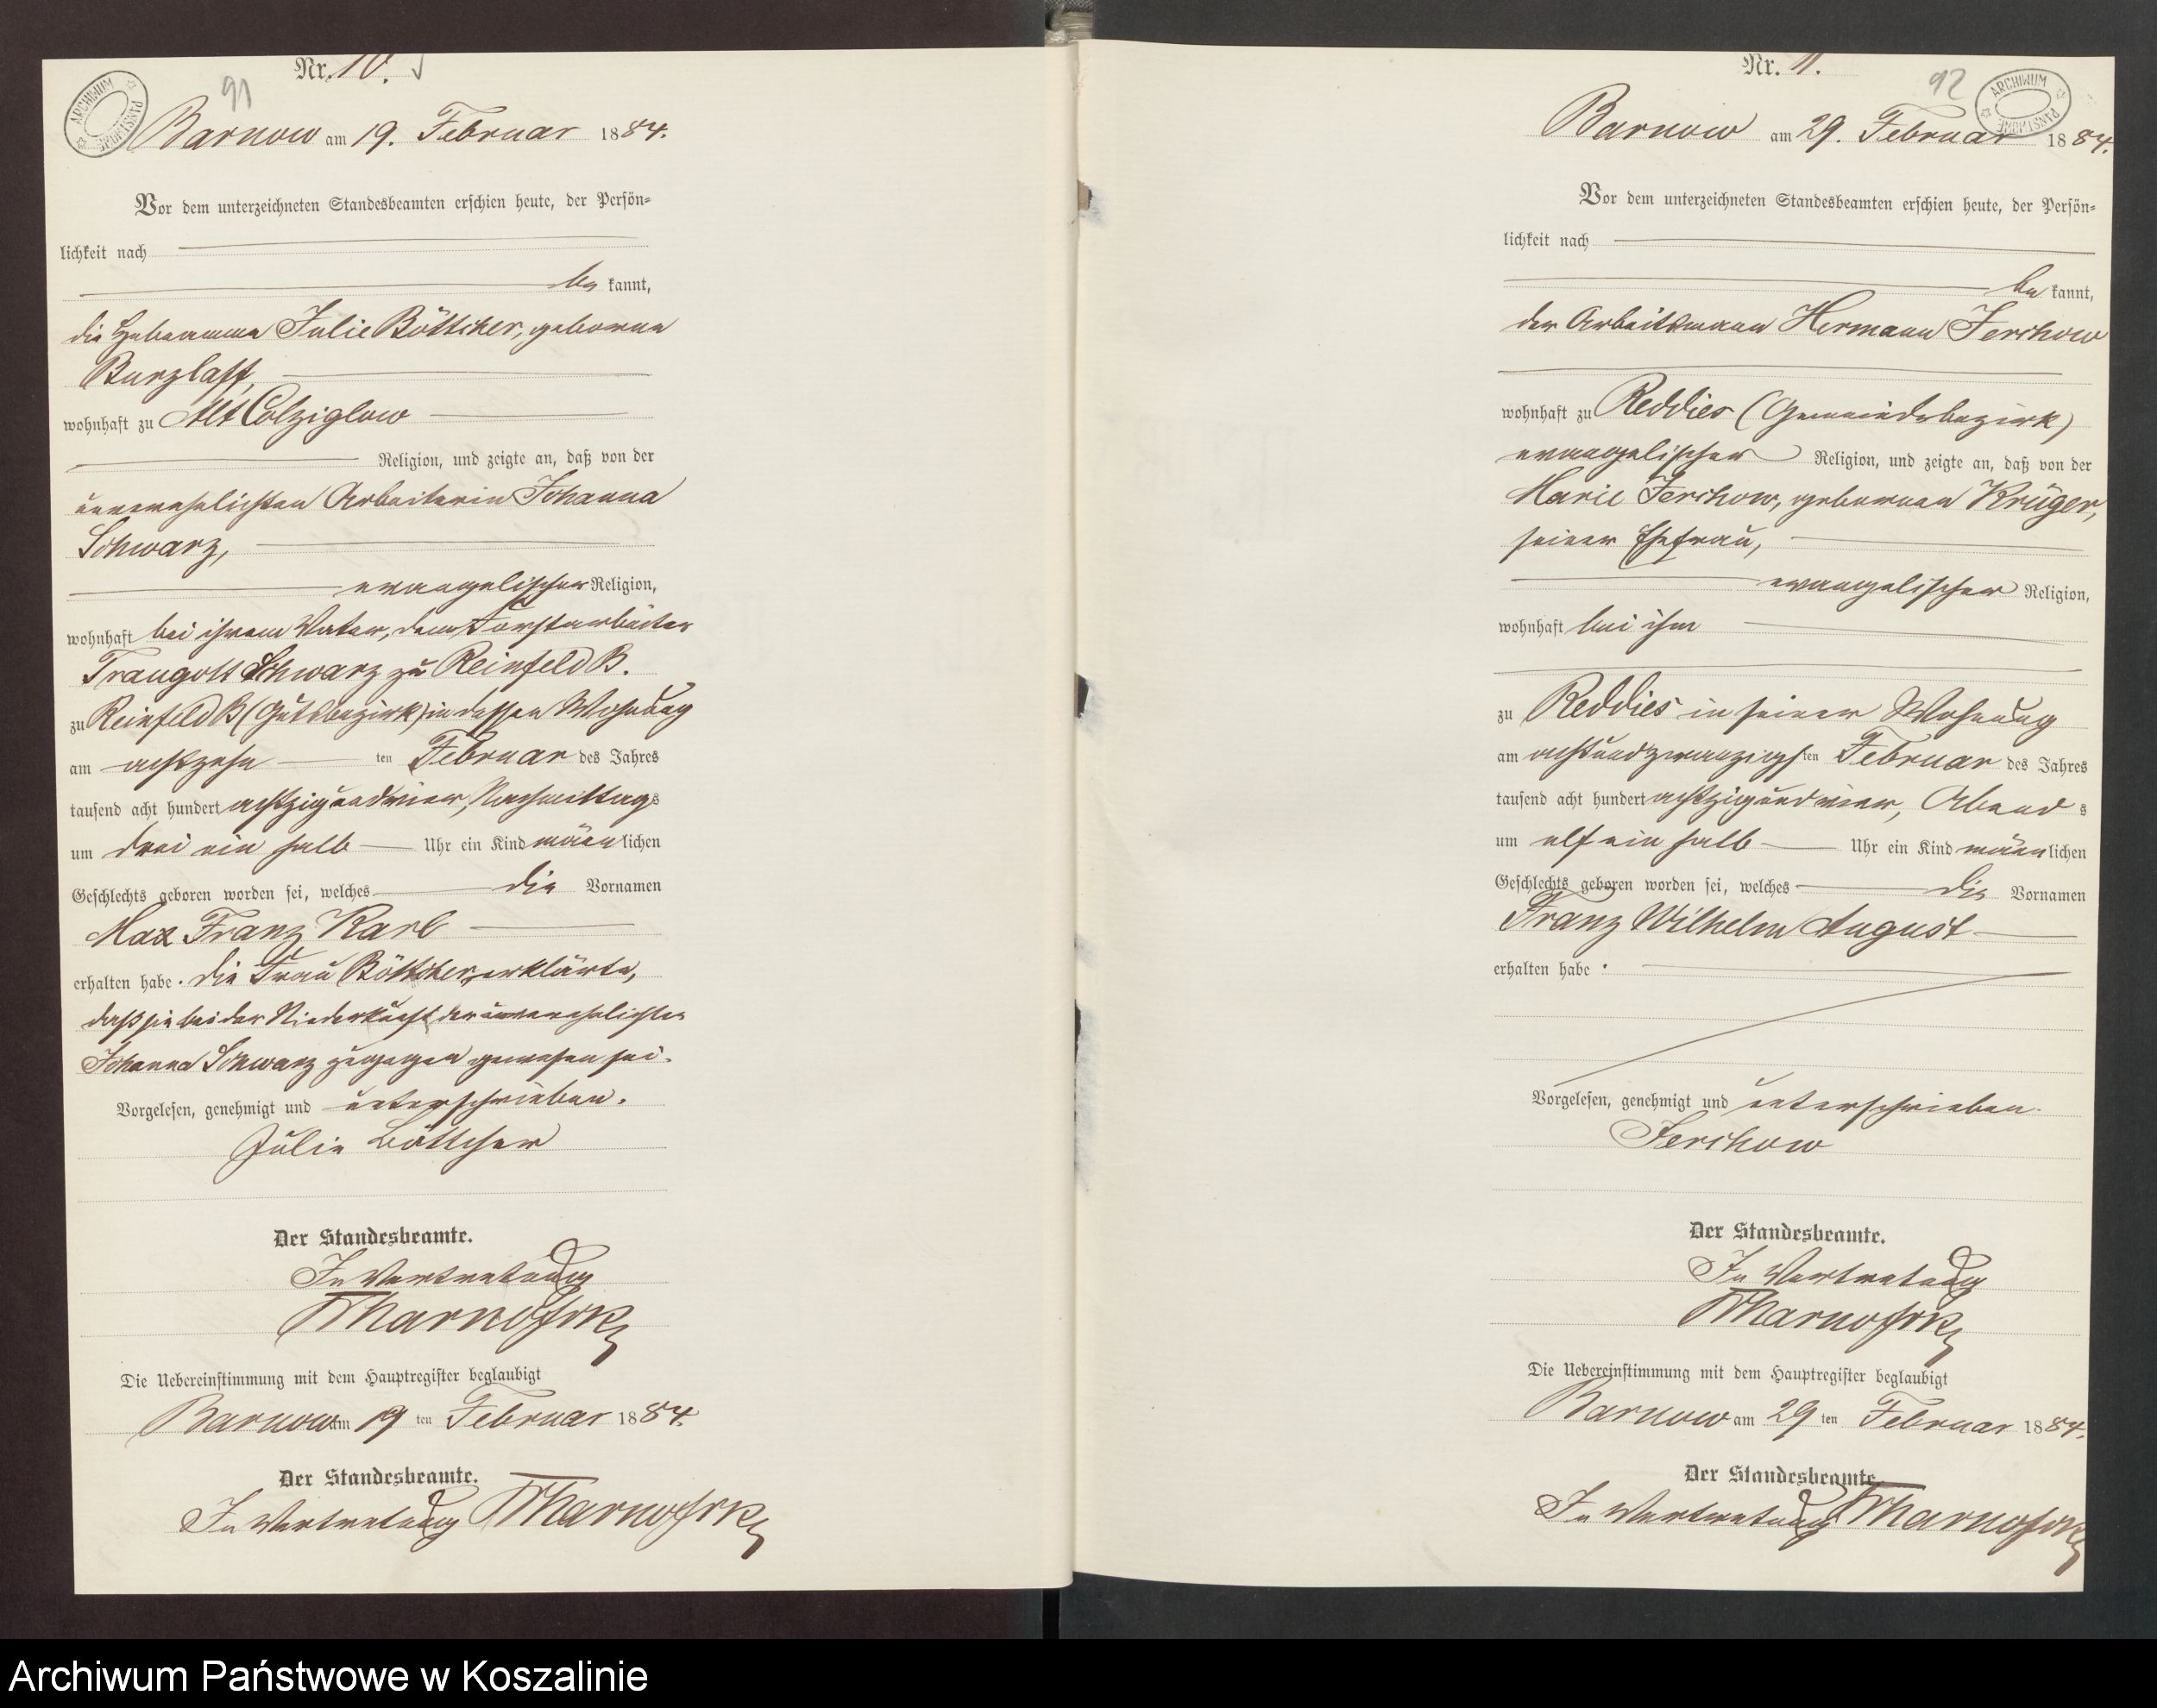 Nr. 10.
91
ARCHIWUM PAŃSTWOWE
Barnow am 19. Februar 1884.
Vor dem unterzeichneten Standesbeamten erschien heute, der Persön-
lichkeit nach
be kannt,
die Hebeamme Julie Böttcher, geborne
Burzlaff,
wohnhaft zu Alt Colziglow
Religion, und zeigte an, daß von der
unverehelichten Arbeiterin Johanna
Schwarz,
evangelischer Religion,
wohnhaft bei ihrem Vater, dem Forstarbeiter
Traugott Schwarz zu Reinfeld B.
zu Reinfeld B (Gutsbezirk) in dessen Wohnung
am achtzehn ten Februar des Jahres
tausend acht hundert achtzig und vier, Nachmittags
um drei ein halb Uhr ein Kind männlichen
Geschlechts geboren worden sei, welches die Vornamen
Max Franz Karl
erhalten habe. Die Frau Böttcher erklärte,
daß sie bei der Niederkunft der unverehelichten
Johanna Schwarz zugegen gewesen sei.
Vorgelesen, genehmigt und unterschrieben.
Julie Böttcher
Der Standesbeamte.
In Vertretung
Die Uebereinstimmung mit dem Hauptregister beglaubigt
Barnow am 19 ten Februar 1884.
Der Standesbeamte.
In Vertretung
Nr. 11.
92
ARCHIWUM PAŃSTWOWE
Barnow am 29. Februar 1884.
Vor dem unterzeichneten Standesbeamten erschien heute, der Persön-
lichkeit nach
be kannt,
der Arbeitsmann Hermann Jerchow
wohnhaft zu Reddies (Gemeindebezirk)
evangelischer Religion, und zeigte an, daß von der
Marie Jerchow, gebornen Krüger,
seiner Ehefrau,
evangelischer Religion,
wohnhaft bei ihm
zu Reddies in seiner Wohnung
am achtundzwanzigsten Februar des Jahres
tausend acht hundert achtzig und vier, Abends
um elf ein halb Uhr ein Kind männlichen
Geschlechts geboren worden sei, welches die Vornamen
Franz Wilhelm August
erhalten habe.
Vorgelesen, genehmigt und unterschrieben.
Jerchow
Der Standesbeamte.
In Vertretung
Die Uebereinstimmung mit dem Hauptregister beglaubigt
Barnow am 29 ten Februar 1884.
Der Standesbeamte.
In Vertretung
Archiwum Państwowe w Koszalinie